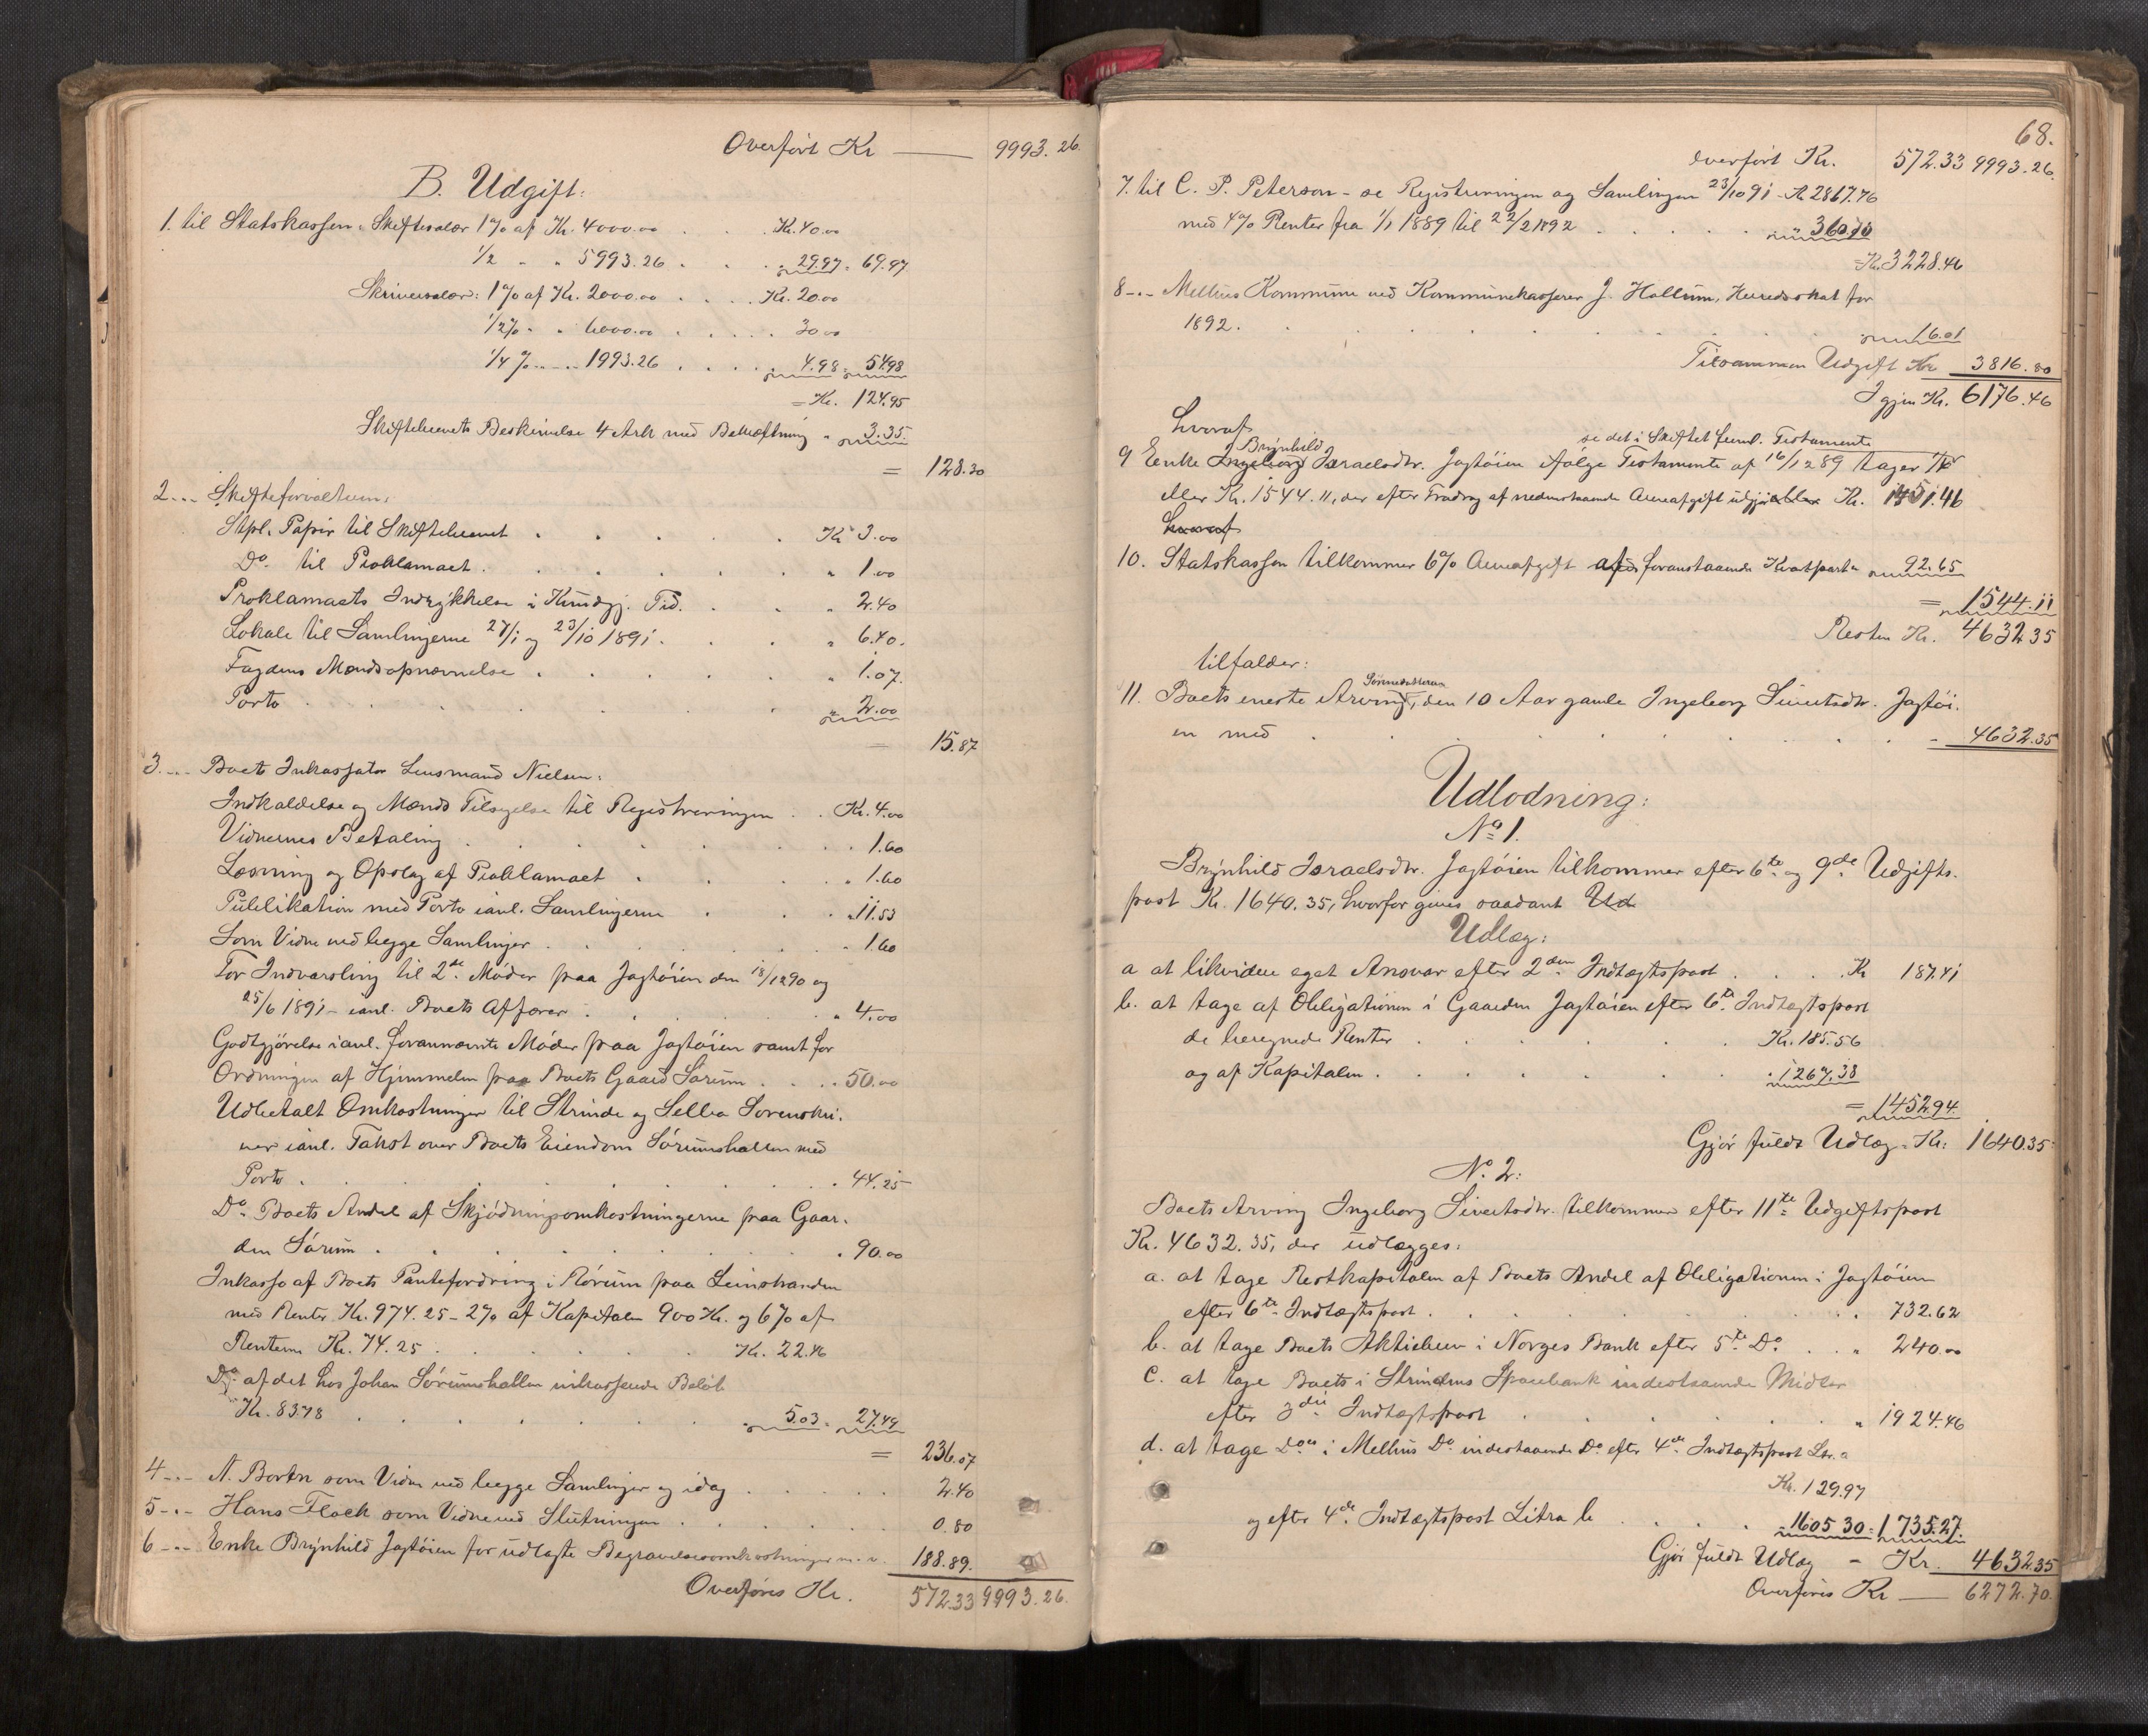 Overført Kr — 9993.26.
B. Udgift:
1. til Statskassen: Skiftesalær 1% af Kr. 4000.00 . . Kr. 40.00
1/2 " " 5993.26 . . . 29.97 = 69.97
Skriversalær: 1% af Kr. 2000.00 . . . Kr. 20.00
1/2% " " 6000.00 . . . . 30.00
1/4 % " " 1993.26 . . . . 4.98 = 54.98
= Kr. 124.95
Skiftebrevets Beskrivelse 4 Ark med Bekræftning " 3.35.
= 128.30
2 -.- Skifteforvalteren:
Stpl. Papir til Skiftebrevet . . . . . Kr 3.00
Do. til Proklamaet . . . . . " 1.00
Proklamaets Indrykkelse i Kundgj. Tid. . . " 2.40
Lokale til Samlingerne 27/1 og 23/10 1891 . . . " 6.40.
Fogdens Mændsopnævnelse . . . . . " 1.07.
Porto . . . . . 2.00
= 15.87
3 -.- Boets Inkassator Lensmand Nielsen:
Indkaldelse og Mænds Tilsigelse til Registreringen . . Kr. 4.00
Vidnernes Betaling . . . . . . 1.60
Læsning og Opslag af Proklamaet . . . . 1.60
Publikation med Porto ianl. Samlingerne . . . " 11.53
Som Vidne ved begge Samlinger . . . . . 1.60
For Indvarsling til 2de Møder paa Jagtøien den 18/12 90 og
25/6 1891 – ianl. Boets Affærer . . . . " 4.00
Godtgjørelse ianl. forannævnte Møder paa Jagtøien samt for
Ordningen af Hjemmelen paa Boets Gaard Sørum . . . . 50.00
Udbetalt Omkostninger til Strinde og Selbu Sorenskri-
ver ianl. Takst over Boets Eiendom Sørumshallen med
Porto . . . . . . . 44.25
Do. Boets Andel af Skjødningsomkostningerne paa Gaar-
den Sørum . . . . . . . 90.00
Inkasso af Boets Pantefordring i Rørum paa Leinstranden
med Renter Kr. 974.25 – 2% af Kapitalen 900 Kr. og 6% af
Renterne Kr. 74.25 . . . . . Kr. 22.46
Do. af det hos Johan Sørumshallen inkasserede Beløb
Kr. 83.78 . . . . . " 5.03 = 27.49
= 236.07
4 -.- A. Borten som Vidne ved begge Samlinger og idag . . . . . 2.40
5 -.- Hans Flaek som Vidne ved Slutningen . . . . . 0.80
6 -.- Enke Brynhild Jagtøien for udlagte Begravelsesomkostninger m. v. 188.89.
Overføres Kr. 572.33 9993.26.
68.
Overført Kr. 572.33 9993.26.
7. til C. P. Peterson – se Registreringen og Samlingen 23/10 91 – Kr. 2867.76
med 4% Renter fra 1/1 1889 til 22/2 1892 . . . . . " 360.70
= Kr. 3228.46
8 -.- Melhus Kommune ved Kommunekasserer J. Hollum, Herredsskat for
1892. . . . . . . . 16.01
Tilsammen Udgift Kr 3816.80
Igjen Kr. 6176.46
hvoraf
se det i Skiftet freml. Testamente
Brynhild
9 Enke Ingeborg Israelsdtr. Jagtøien ifølge Testamente af 16/12 89 tager 1/4
eller Kr. 1544.11, der efter Fradrag af nedenstaaende Arveafgift udgjør eller Kr. 1451.46
hvoraf
10. Statskassen tilkommer 6% Arveafgift af foranstaaende Kvotpart " 92.65
= 1544.11
Resten Kr. 4632.35
tilfalder:
Sønnedatteren
11. Boets eneste Arving, den 10 Aar gamle Ingeborg Sivertsdtr. Jagtøi-
en med . . . . . . . . 4632.35
Udlodning:
No 1.
Brynhild Israelsdtr. Jagtøien tilkommer efter 6te og 9de Udgifts-
post Kr. 1640.35, hvorfor gives saadant Ud
Udlæg:
a at likvidere eget Ansvar efter 2den Indtægtspost . . . . Kr 187.41
b. at tage af Obligationen i Gaarden Jagtøien efter 6te Indtægtspost
de beregnede Renter . . . . . . Kr. 185.56
og af Kapitalen . . . . . . . 1267.38
= 1452.94.
Gjør fuldt Udlæg – Kr: 1640.35
No. 2:
Boets Arving Ingeborg Sivertsdtr. tilkommer efter 11te Udgiftspost
Kr. 4632.35, der udlægges:
a. at tage Restkapitalen af Boets Andel af Obligationen i Jagtøien
efter 6te Indtægtspost . . . . . . . 732.62
b. at tage Boets Aktiebrev i Norges Bank efter 5te Do . . . " 240.00
c. at tage Boets i Strindens Sparebank indestaaende Midler
efter 3die Indtægtspost . . . . . . " 1924.46
d. at tage Do. i Melhus Do. indestaaende Do. efter 4de Indtægtspost Ltr. a
Kr. 129.97
og efter 4de Indtægtspost Litra b . . . . 1605.30 = 1735.27.
Gjør fuldt Udlæg – Kr. 4632.35
Overføres Kr — 6272.70.